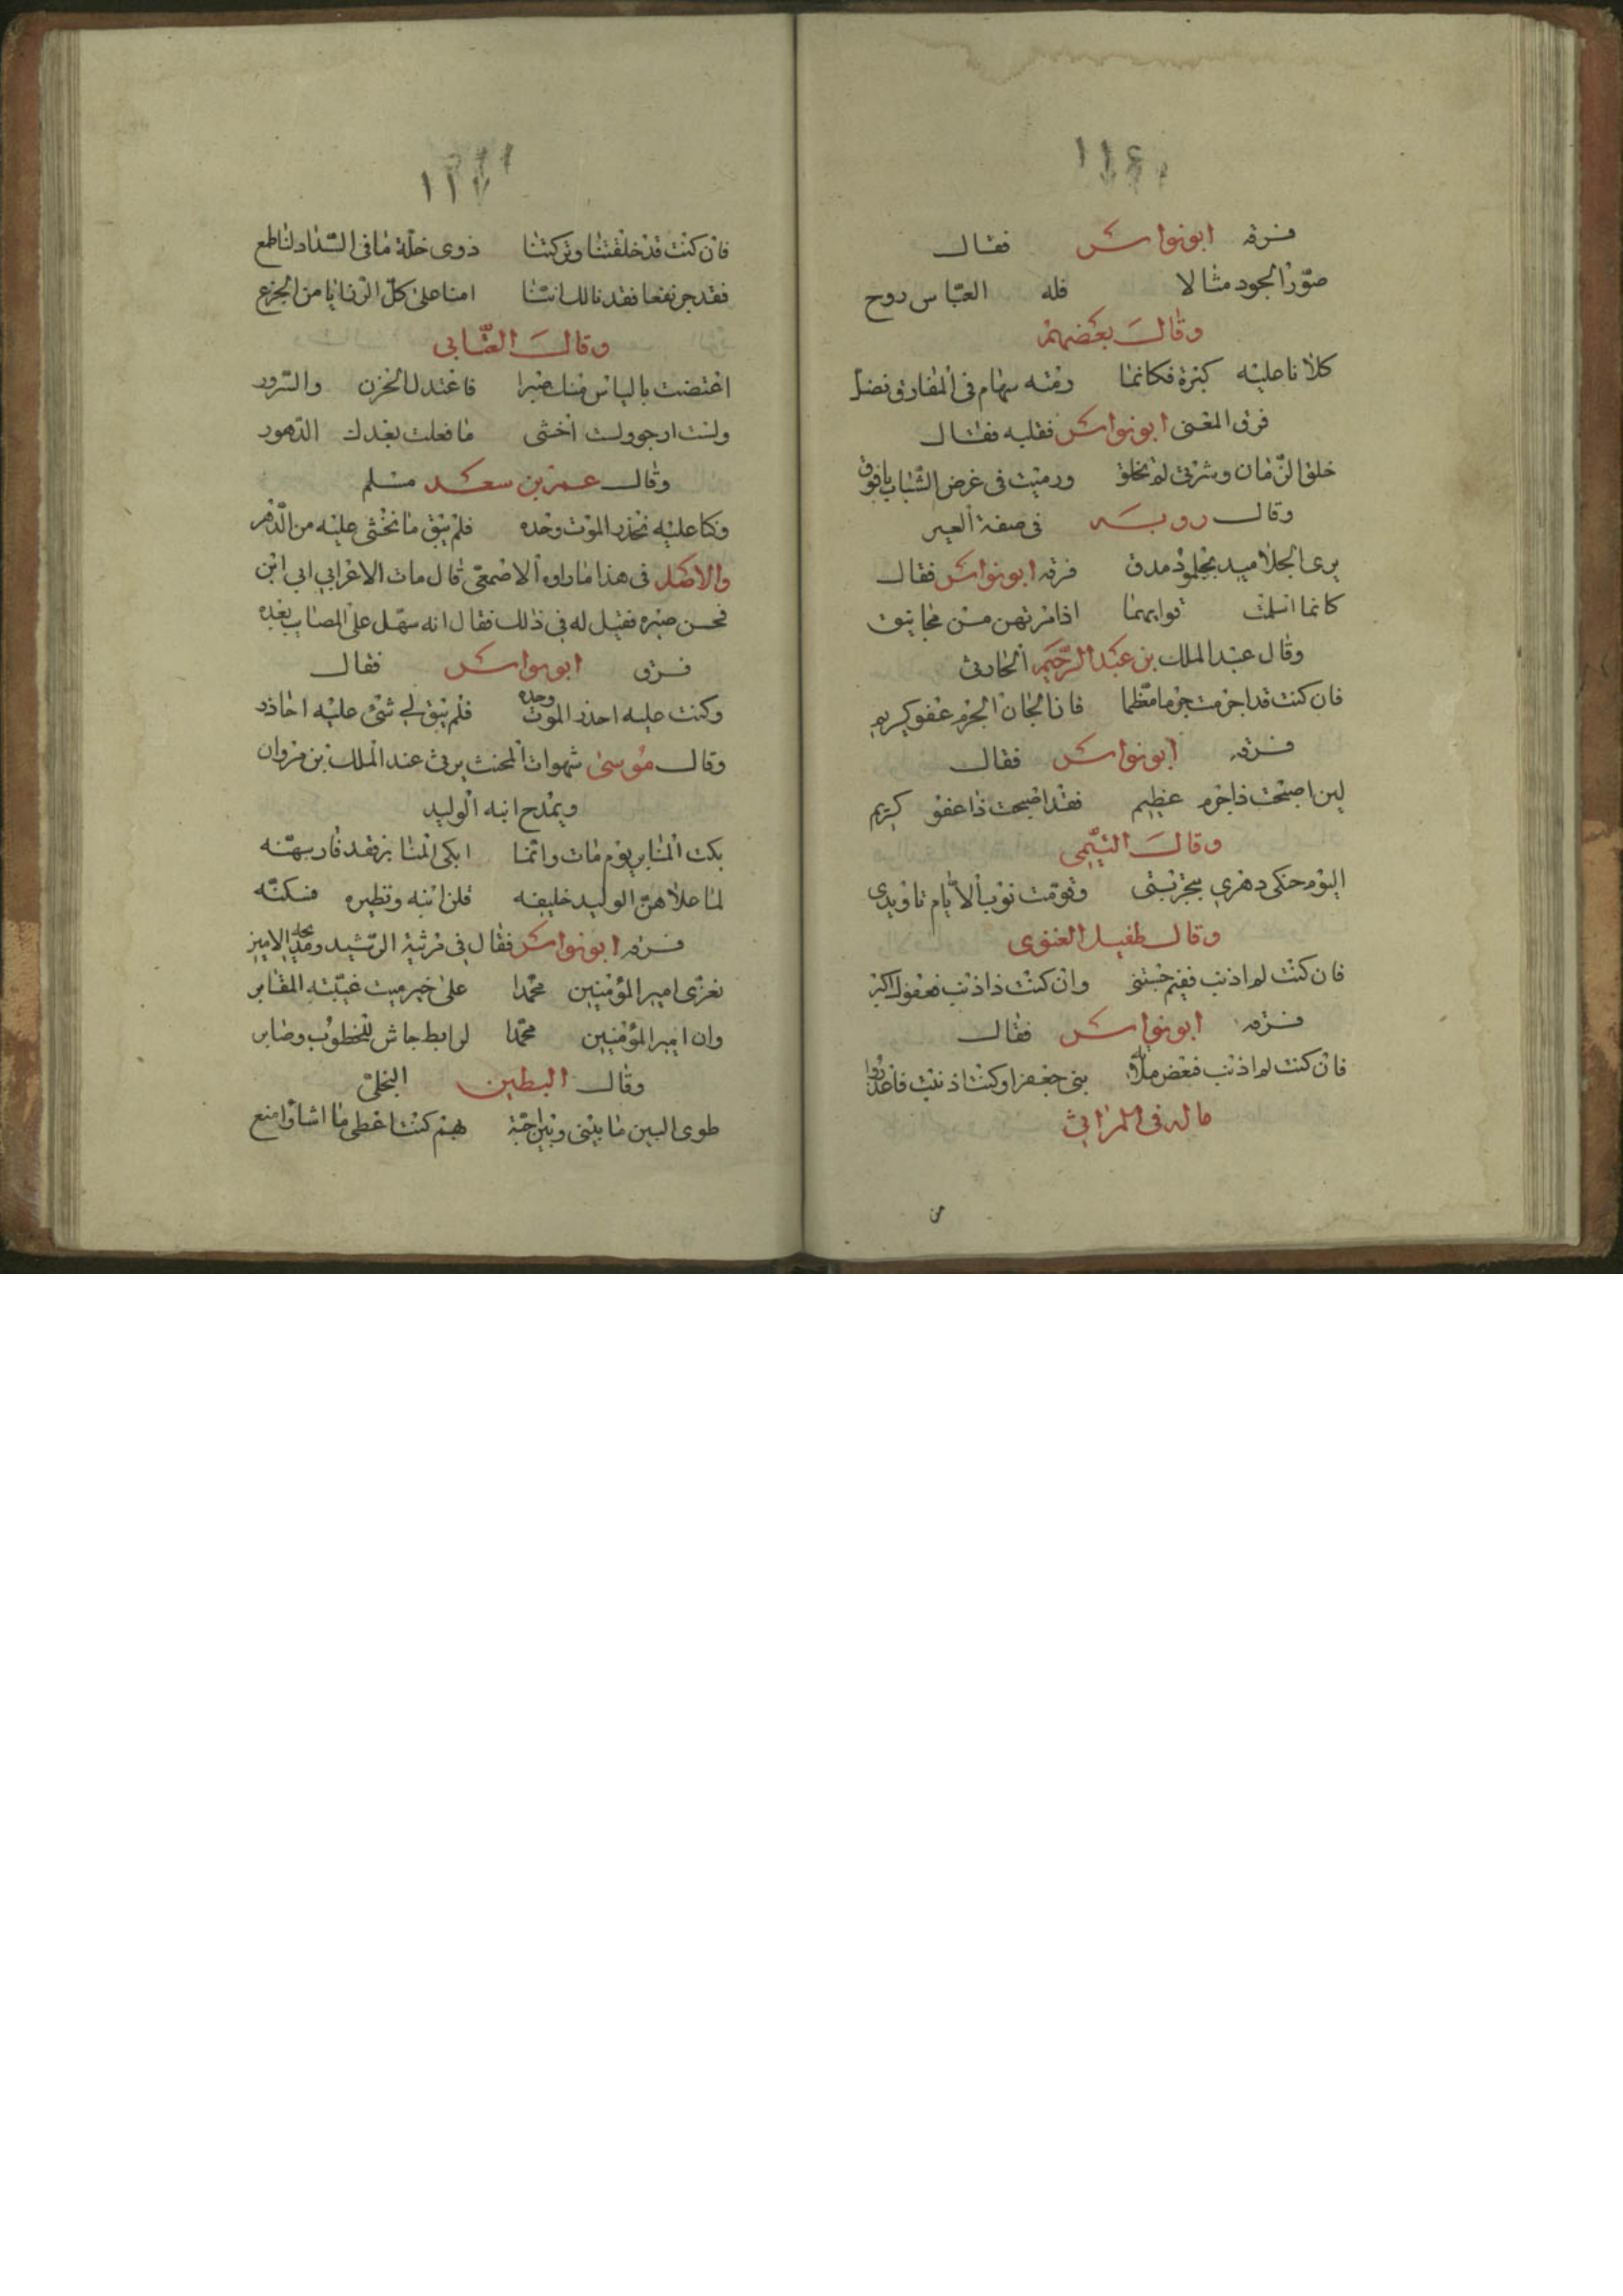 ١١٤
فسرقه ابونواس فقال
صوّر الجود مثالا فله العبّاس روح
وقال بعضهم
كلانا عليه كبرة فكانما رمته سهام في المفارق نصل
فرق المعنى ابونواس فقلبه فقال
خلق الزمان وشرتي لم تخلق ورميت في غرض الشباب بافوق
وقال روبه في صفة العير
يرى الجلاميد بجلمود مدق فرقه ابونواس فقال
كانما اذا مرتهن من مجانيق
وقال عبد الملك بن عبد الرحيم الحارثي
فان كنت قد اجرمت جرما معظما فانا لجان الجرم عفو كريم
فسرقه ابونواس فقال
لين اصبحت ذا جرم عظيم فقد اصبحت ذا عفو كريم
وقال التيمى
اليوم حنكى دهري بتجربتى وقومت نوب الايام تاويدى
وقال طفيل الغنوى
فان كنت لم اذنب ففيم وان كنت ذا ذنب فعفوك اكبر
فسرقه ابونواس فقال
فان كنت لم اذنب بنى جعفرا وكنت اذنبت
ماله في المراثي
من
١١٧
فان كنت قد خلفتنا وتركتنا ذوى خلة ما في السداد لنا طمع
فقد جر نفعا فقدنا لك اننا امنا على كل الرزايا من الجزع
وقال العتابى
اعتضت بالياس منك صبرا فاعتدل الحزن والسرور
ولست ارجو ولست اخشى ما فعلت بعدك الدهور
وقال عمر بن سعد مسلم
وكنا عليه نحذر الموت وحده فلم يبق ما نخشى عليه من الدهر
والاصل في هذا ما رواه الاصمعى قال مات الاعرابي ابن
فحسن صبره فقيل له في ذلك فقال انه سهل على المصايب بعده
فسرق ابونواس فقال
وكنت عليه احذر الموت وحده فلم يبق لي شئ عليه احاذر
وقال موسى شهوات المخنث يرثى عند الملك بن مروان
ويمدح ابنه الوليد
بكت المنابر يوم مات وانما ابكى المنابر فقد فارسهنه
لما علاهن الوليد خليفه قلن ابنه ونظيره فسكنه
فسرقه ابونواس فقال في مرثية الرشيد ومدح الامين
نعزى امير المؤمنين محمدا على خير ميت غيبته المقابر
وان امير المؤمنين محمدا لرابط جاش للخطوب وصابر
وقال البطين البجلى
طوى البين ما بينى وبين احبة بهم كنت اعطى ما اشاء وامنع